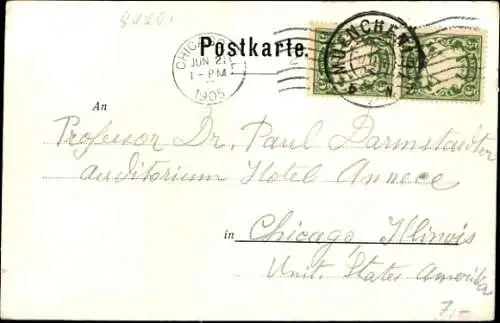 Postkarte.
CHICAGO
JUN 21
1-PM
1905
MUENCHEN
An
Professor Dr. Paul Darmstaedter
auditorium Hotel Annece
in Chicago, Illinois
Unit. States Amerika
7,-